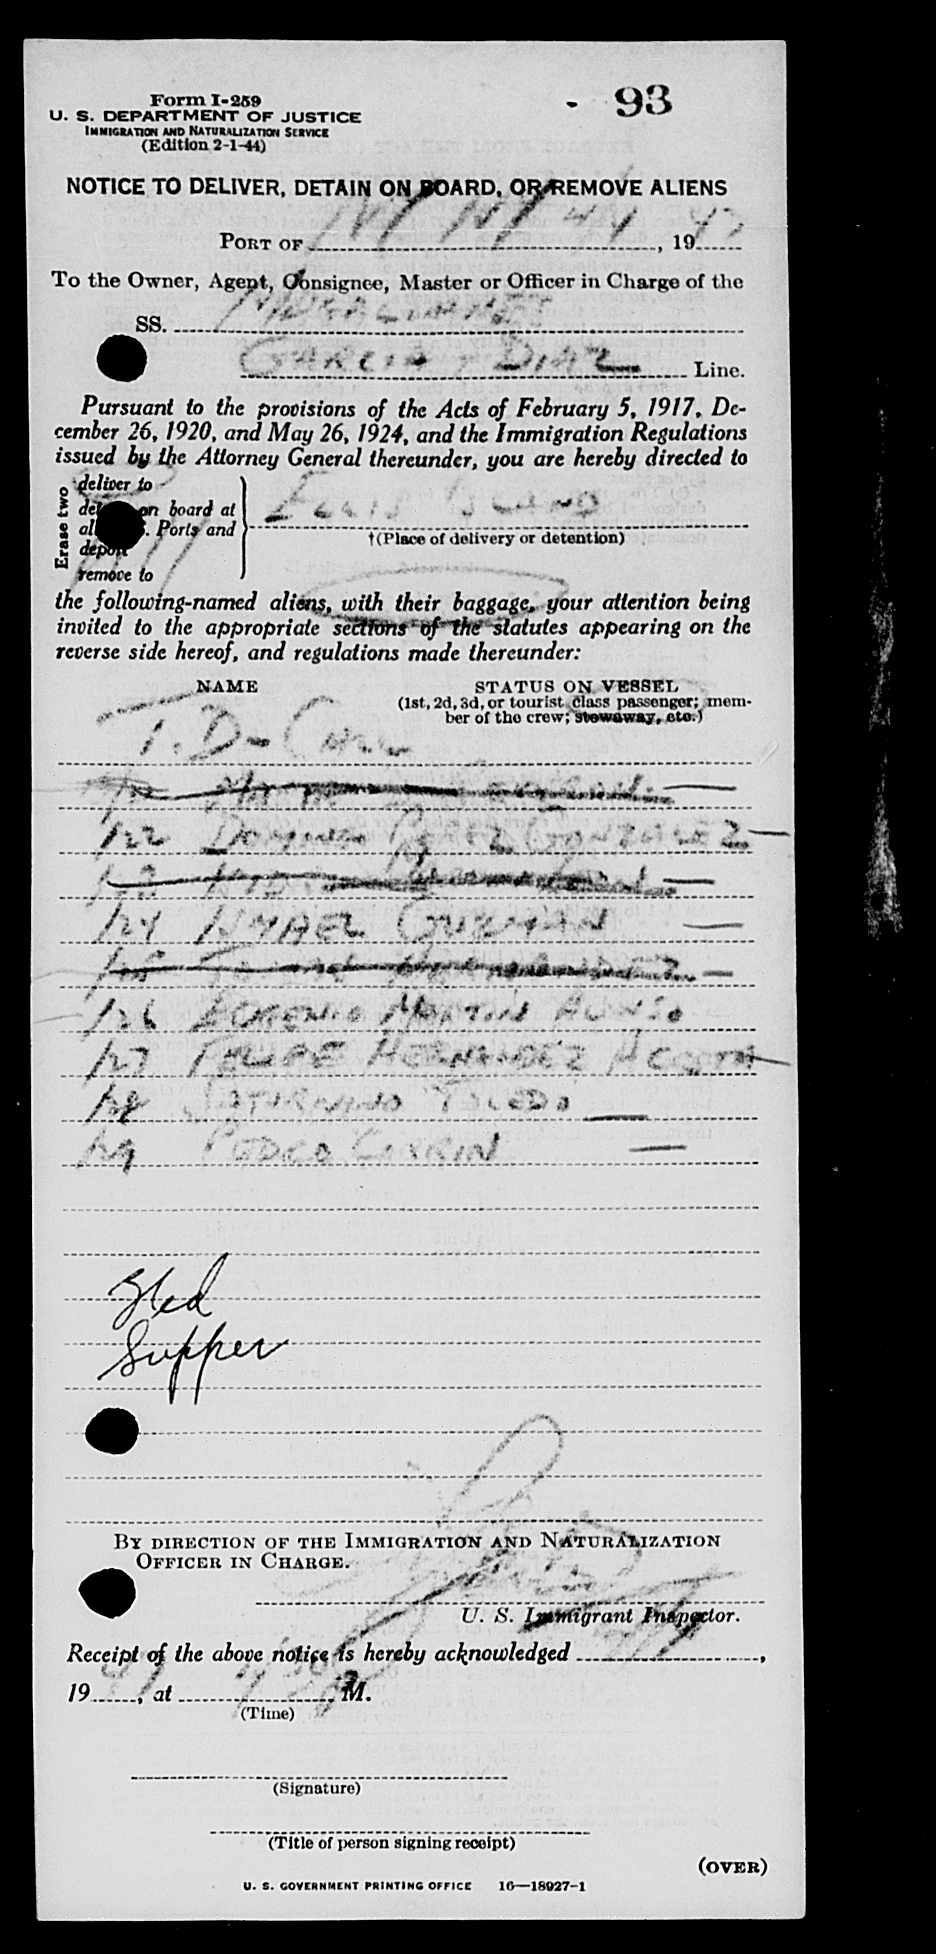 Form I-259
- 93
U. S. DEPARTMENT OF JUSTICE
IMMIGRATION AND NATURALIZATION SERVICE
(Edition 2-1-44)
NOTICE TO DELIVER, DETAIN ON BOARD, OR REMOVE ALIENS
PORT OF NY NY, 1947
To the Owner, Agent, Consignee, Master or Officer in Charge of the
SS.
GARCIA Y DIAZ Line.
Pursuant to the provisions of the Acts of February 5, 1917, De-
cember 26, 1920, and May 26, 1924, and the Immigration Regulations
issued by the Attorney General thereunder, you are hereby directed to
Erase two
deliver to
on board at
Ports and
deport
remove to
ELLIS ISLAND
†(Place of delivery or detention)
the following-named aliens, with their baggage, your attention being
invited to the appropriate sections of the statutes appearing on the
reverse side hereof, and regulations made thereunder:
NAME
STATUS ON VESSEL
(1st, 2d, 3d, or tourist class passenger; mem-
ber of the crew; stowaway, etc.)
T. D-
122 PEREZ GONZALEZ —
124 GUZMAN —
126 EUGENIO MARTIN ALONSO
127 FELIPE HERNANDEZ ACOSTA —
128 SATURNINO TOLEDO —
129 PEDRO —
Supper
BY DIRECTION OF THE IMMIGRATION AND NATURALIZATION
OFFICER IN CHARGE.
U. S. Immigrant Inspector.
Receipt of the above notice is hereby acknowledged 4/4,
1947, at M.
(Time)
(Signature)
(Title of person signing receipt)
(OVER)
U. S. GOVERNMENT PRINTING OFFICE 16—18927-1